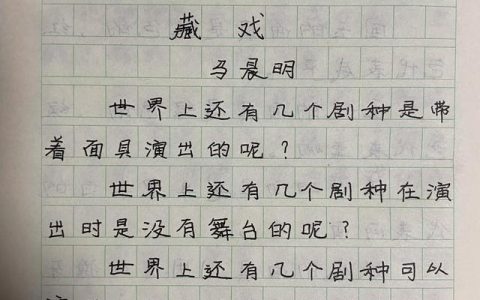 藏戏
马晨明
世界上还有几个剧种是带
着面具演出的呢？
世界上还有几个剧种在演
出时是没有舞台的呢？
世界上还有几个剧种可以